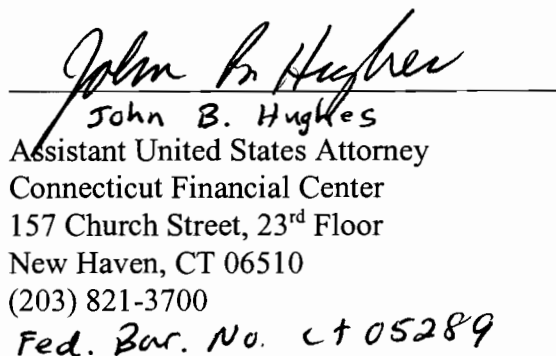 John B. Hughes
John B. Hughes
Assistant United States Attorney
Connecticut Financial Center
157 Church Street, 23rd Floor
New Haven, CT 06510
(203) 821-3700
Fed. Bar. No. ct 05289